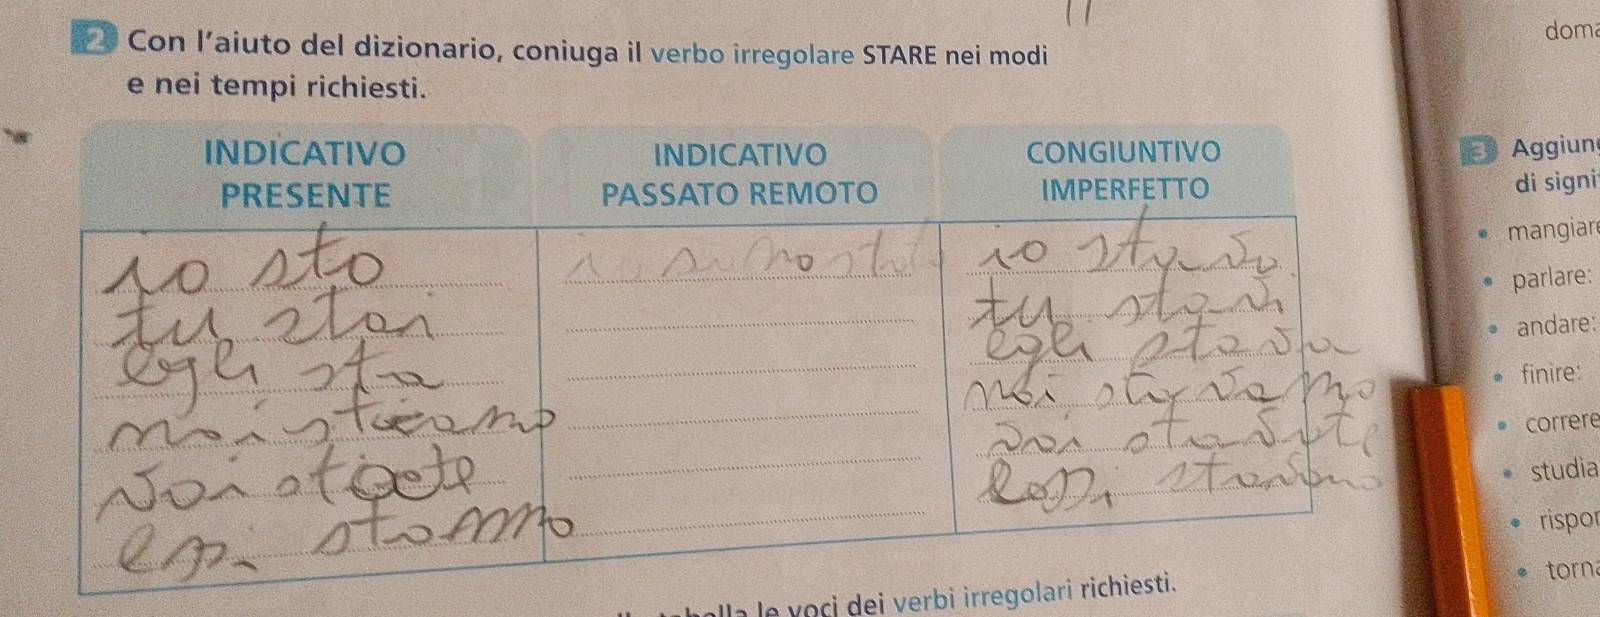 doma
2 Con l'aiuto del dizionario, coniuga il verbo irregolare STARE nei modi
e nei tempi richiesti.
INDICATIVO PRESENTE
INDICATIVO PASSATO REMOTO
CONGIUNTIVO IMPERFETTO
io sto
tu stai
egli sta
noi stiamo
voi state
essi stanno
io stavo
tu stavi
egli stava
noi stavamo
voi stavate
essi stavano
3 Aggiun
di signi
• mangiare
• parlare:
• andare:
• finire:
• correre
• studia
• rispon
• torna
le voci dei verbi irregolari richiesti.